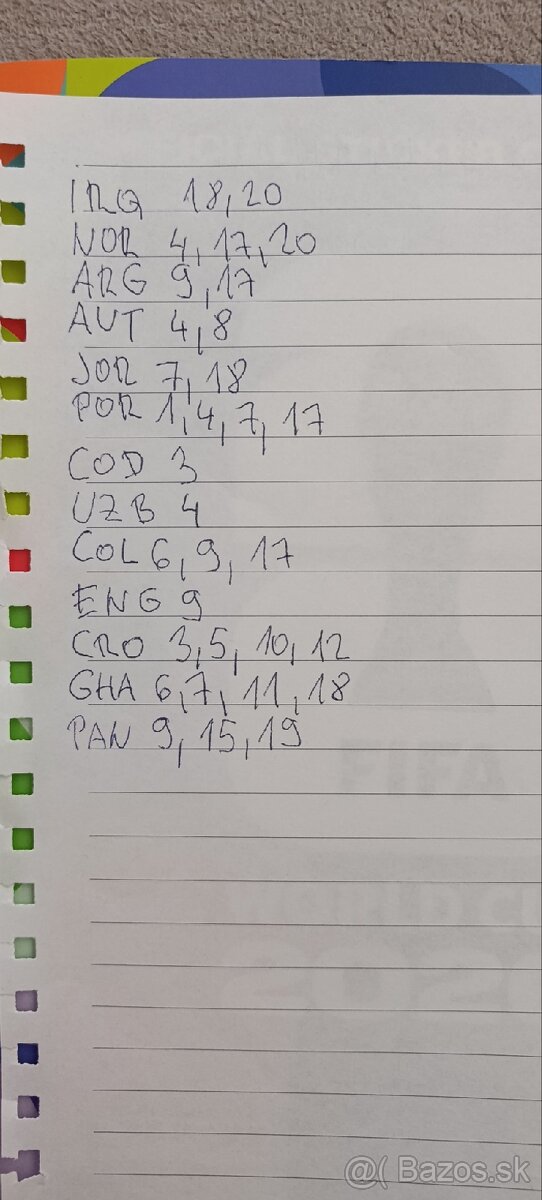 IRQ 18, 20
NOR 4, 17, 20
ARG 9, 17
AUT 4, 8
JOR 7, 18
POR 1, 4, 7, 17
COD 3
UZB 4
COL 6, 9, 17
ENG 9
CRO 3, 5, 10, 12
GHA 6, 7, 11, 18
PAN 9, 15, 19
FIFA
@( Bazos.sk